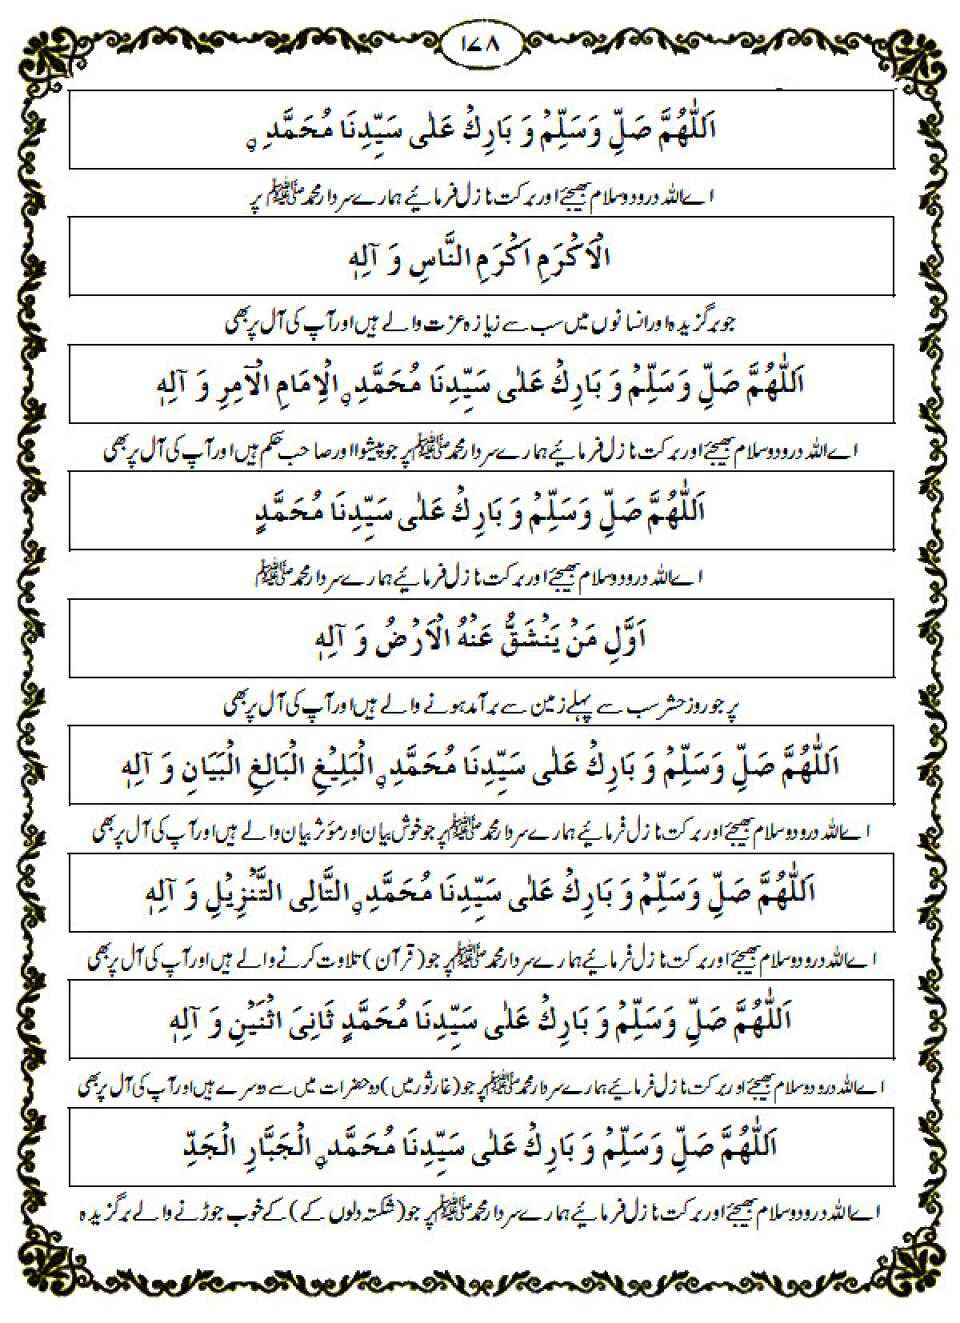 ۱۷۸
اَللّٰهُمَّ صَلِّ وَسَلِّمْ وَ بَارِكْ عَلٰى سَيِّدِنَا مُحَمَّدِ ۣ
اے اللہ درود و سلام بھیجئے اور برکت نازل فرمائیے ہمارے سردار محمد ﷺ پر
الْاَكْرَمِ اَكْرَمِ النَّاسِ وَ آلِهٖ
جو برگزیدہ اور انسانوں میں سب سے زیازہ عزت والے ہیں اور آپ کی آل پر بھی
اَللّٰهُمَّ صَلِّ وَسَلِّمْ وَ بَارِكْ عَلٰى سَيِّدِنَا مُحَمَّدِ ۣ الْاِمَامِ الْآمِرِ وَ آلِهٖ
اے اللہ درود و سلام بھیجئے اور برکت نازل فرمائیے ہمارے سردار محمد ﷺ پر جو پیشوا اور صاحب حکم ہیں اور آپ کی آل پر بھی
اَللّٰهُمَّ صَلِّ وَسَلِّمْ وَ بَارِكْ عَلٰى سَيِّدِنَا مُحَمَّدٍ
اے اللہ درود و سلام بھیجئے اور برکت نازل فرمائیے ہمارے سردار محمد ﷺ
اَوَّلِ مَنْ يَنْشَقُّ عَنْهُ الْاَرْضُ وَ آلِهٖ
پر جو روز حشر سب سے پہلے زمین سے برآمد ہونے والے ہیں اور آپ کی آل پر بھی
اَللّٰهُمَّ صَلِّ وَسَلِّمْ وَ بَارِكْ عَلٰى سَيِّدِنَا مُحَمَّدِ ۣ الْبَلِيْغِ الْبَالِغِ الْبَيَانِ وَ آلِهٖ
اے اللہ درود و سلام بھیجئے اور برکت نازل فرمائیے ہمارے سردار محمد ﷺ پر جو خوش بیان اور مؤثر بیان والے ہیں اور آپ کی آل پر بھی
اَللّٰهُمَّ صَلِّ وَسَلِّمْ وَ بَارِكْ عَلٰى سَيِّدِنَا مُحَمَّدِ ۣ التَّالِى التَّنْزِيْلِ وَ آلِهٖ
اے اللہ درود و سلام بھیجئے اور برکت نازل فرمائیے ہمارے سردار محمد ﷺ پر جو (قرآن) تلاوت کرنے والے ہیں اور آپ کی آل پر بھی
اَللّٰهُمَّ صَلِّ وَسَلِّمْ وَ بَارِكْ عَلٰى سَيِّدِنَا مُحَمَّدٍ ثَانِىَ اثْنَيْنِ وَ آلِهٖ
اے اللہ درود و سلام بھیجئے اور برکت نازل فرمائیے ہمارے سردار محمد ﷺ پر جو (غار ثور میں) دو حضرات میں سے دوسرے ہیں اور آپ کی آل پر بھی
اَللّٰهُمَّ صَلِّ وَسَلِّمْ وَ بَارِكْ عَلٰى سَيِّدِنَا مُحَمَّدِ ۣ الْجَبَّارِ الْجَدِّ
اے اللہ درود و سلام بھیجئے اور برکت نازل فرمائیے ہمارے سردار محمد ﷺ پر جو (شکستہ دلوں کے) کے خوب جوڑنے والے برگزیدہ